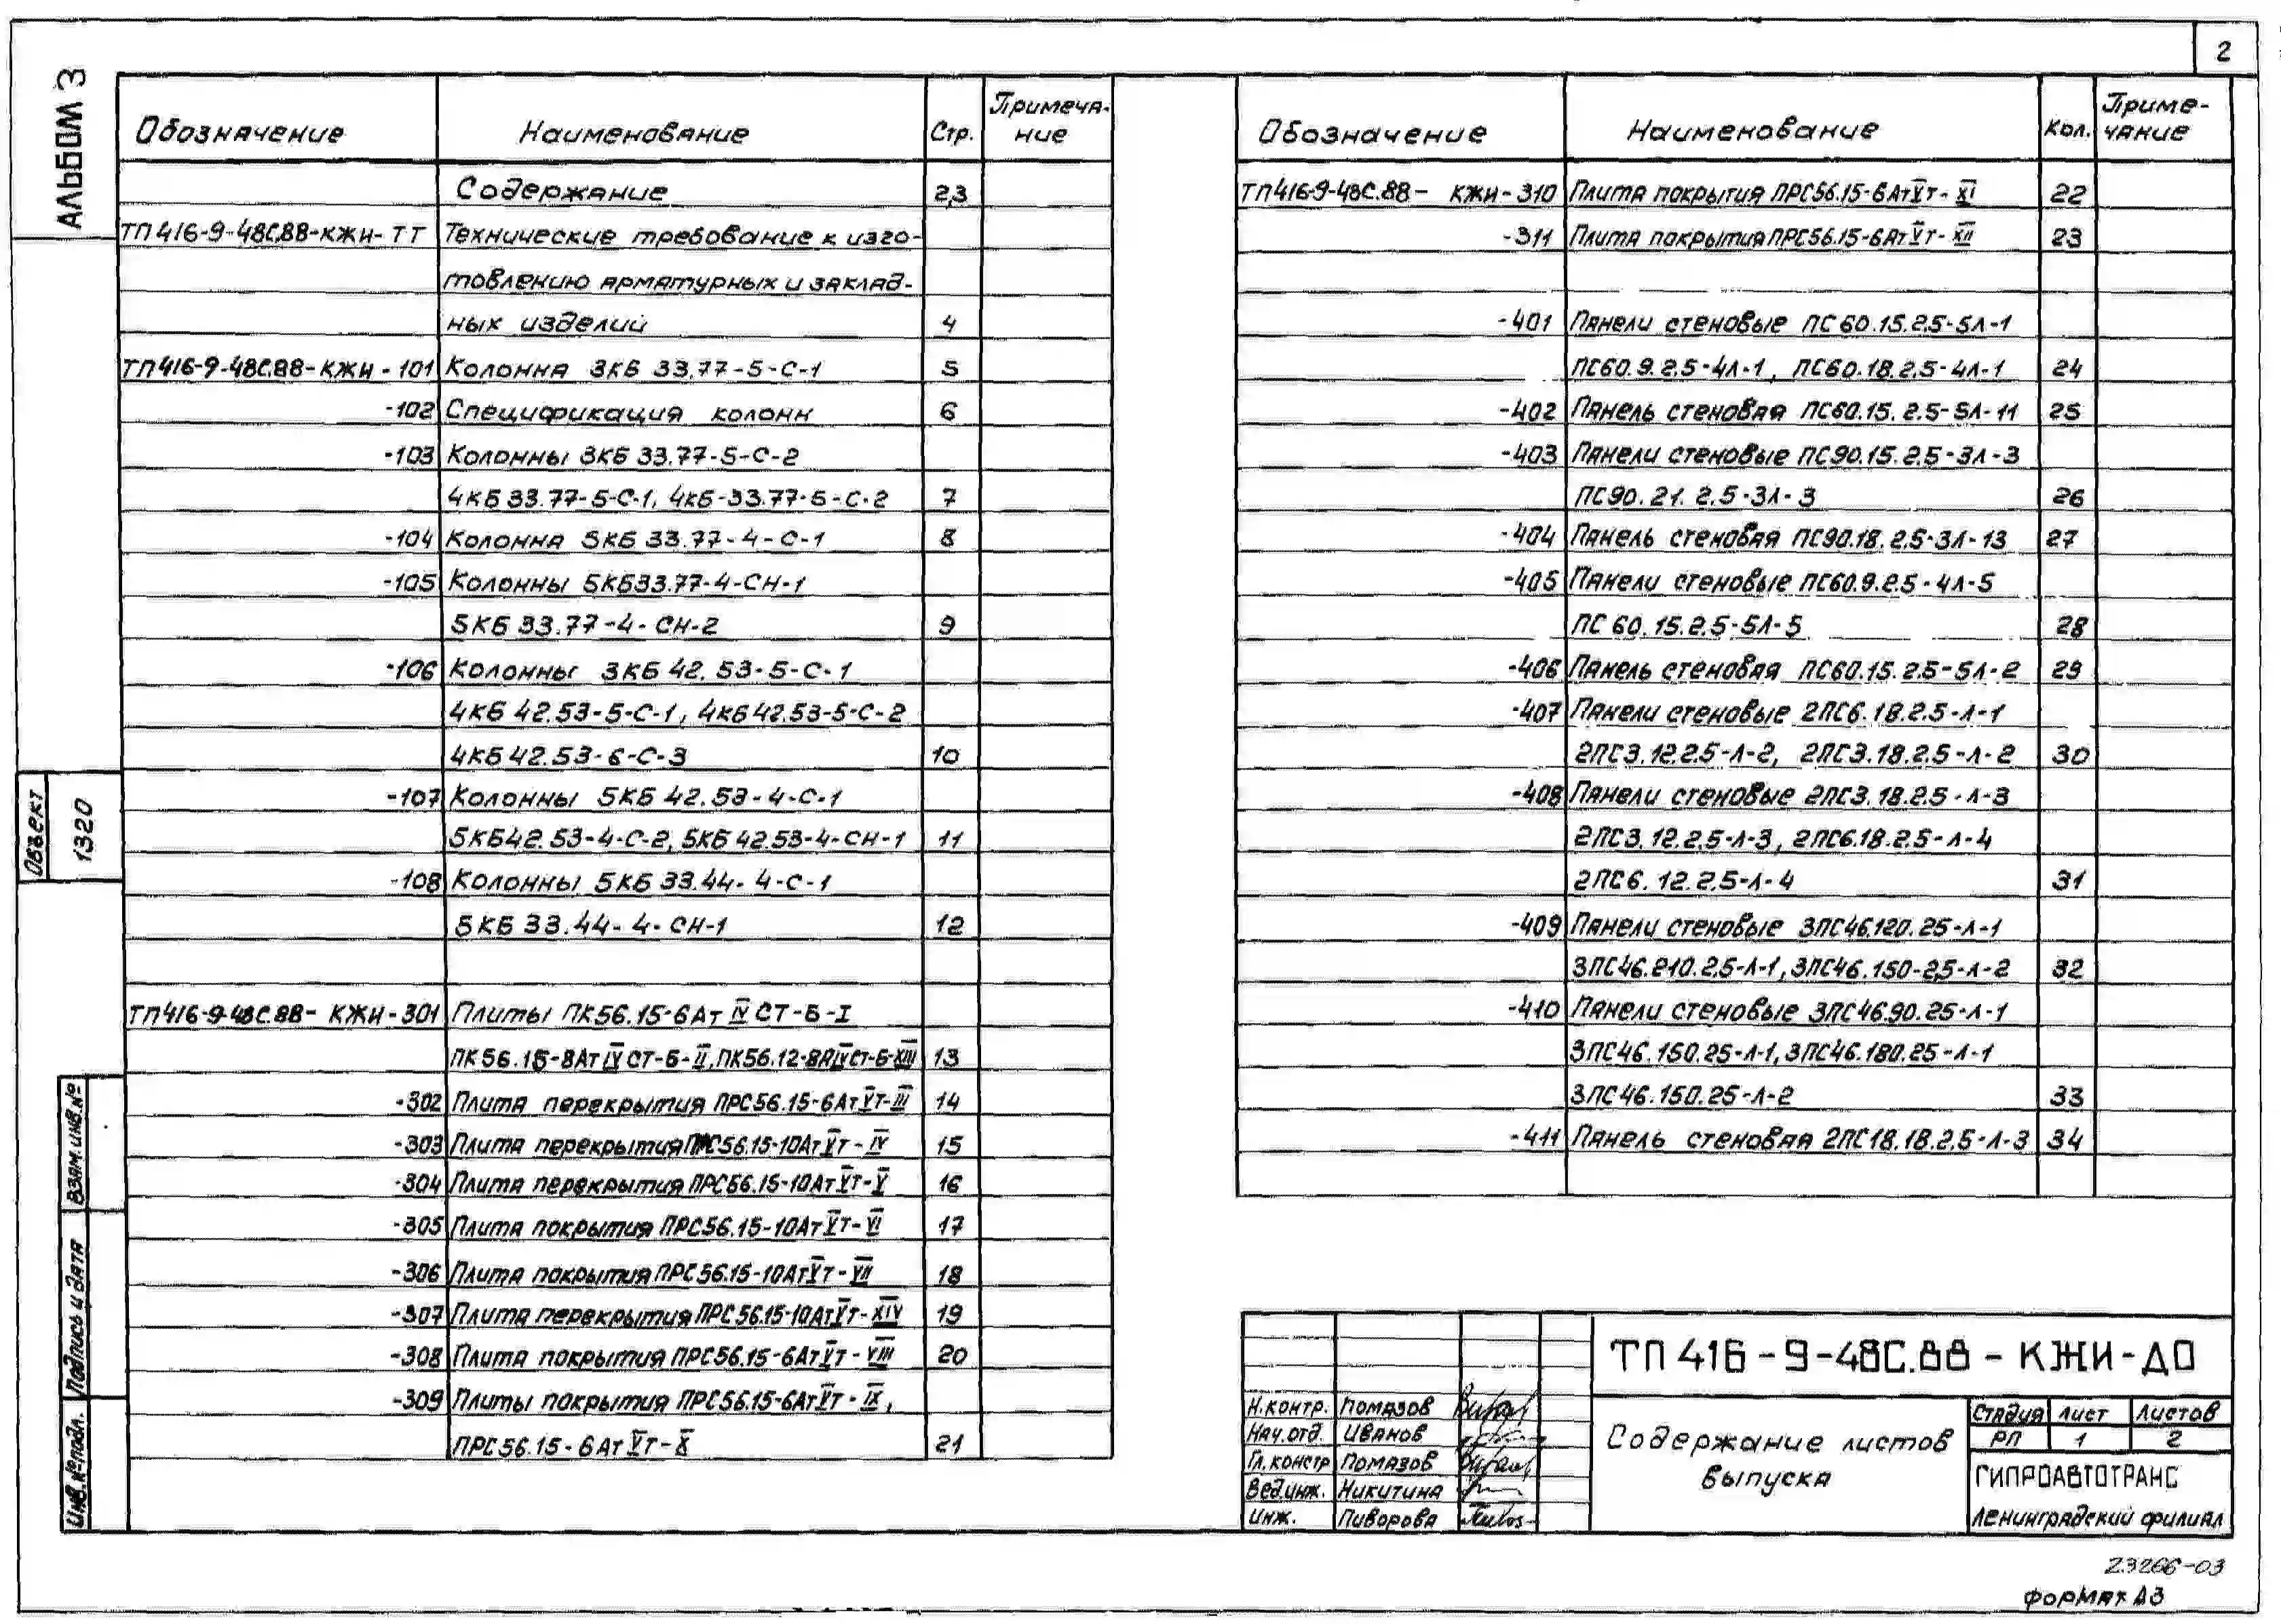 2
АЛЬБОМ 3
Обозначение Наименование Стр. Примеча-
ние
Содержание 2,3
ТП416-9-48С.88-КЖИ-ТТ Технические требование к изго-
товлению арматурных и заклад-
ных изделий 4
ТП416-9-48С.88-КЖИ-101 Колонна 3КБ 33.77-5-С-1 5
-102 Спецификация колонн 6
-103 Колонны 3КБ 33.77-5-С-2
4КБ 33.77-5-С-1, 4КБ-33.77-5-С-2 7
-104 Колонна 5КБ 33.77-4-С-1 8
-105 Колонны 5КБ33.77-4-СН-1
5КБ 33.77-4-СН-2 9
-106 Колонны 3КБ 42.53-5-С-1
4КБ 42.53-5-С-1, 4КБ42.53-5-С-2
4КБ 42.53-6-С-3 10
-107 Колонны 5КБ 42.53-4-С-1
5КБ42.53-4-С-2, 5КБ 42.53-4-СН-1 11
-108 Колонны 5КБ 33.44-4-С-1
5КБ 33.44-4-СН-1 12
ТП416-9-48С.88-КЖИ-301 Плиты ПК56.15-6Ат IV СТ-Б-I
ПК56.15-8Ат IV СТ-Б-II, ПК56.12-8АIVСТ-Б-XIII 13
-302 Плита перекрытия ПРС56.15-6Ат VТ-III 14
-303 Плита перекрытия ПРС56.15-10Ат VТ-IV 15
-304 Плита перекрытия ПРС56.15-10Ат VТ-V 16
-305 Плита покрытия ПРС56.15-10Ат VТ-VI 17
-306 Плита покрытия ПРС56.15-10Ат VТ-VII 18
-307 Плита перекрытия ПРС56.15-10Ат VТ-XIV 19
-308 Плита покрытия ПРС56.15-6Ат VТ-VIII 20
-309 Плиты покрытия ПРС56.15-6Ат VТ-IX,
ПРС56.15-6Ат VТ-X 21
Обозначение Наименование Кол. Приме-
чание
ТП416-9-48С.88-КЖИ-310 Плита покрытия ПРС56.15-6Ат VТ-XI 22
-311 Плита покрытия ПРС56.15-6Ат VТ-XII 23
-401 Панели стеновые ПС60.15.2.5-5Л-1
ПС60.9.2.5-4Л-1, ПС60.18.2.5-4Л-1 24
-402 Панель стеновая ПС60.15.2.5-5Л-11 25
-403 Панели стеновые ПС90.15.2.5-3Л-3
ПС90.21.2.5-3Л-3 26
-404 Панель стеновая ПС90.18.2.5-3Л-13 27
-405 Панели стеновые ПС60.9.2.5-4Л-5
ПС60.15.2.5-5Л-5 28
-406 Панель стеновая ПС60.15.2.5-5Л-2 29
-407 Панели стеновые 2ПС6.18.2.5-Л-1
2ПС3.12.2.5-Л-2, 2ПС3.18.2.5-Л-2 30
-408 Панели стеновые 2ПС3.18.2.5-Л-3
2ПС3.12.2.5-Л-3, 2ПС6.18.2.5-Л-4
2ПС6.12.2.5-Л-4 31
-409 Панели стеновые 3ПС46.120.25-Л-1
3ПС46.210.2.5-Л-1, 3ПС46.150-2,5-Л-2 32
-410 Панели стеновые 3ПС46.90.25-Л-1
3ПС46.150.25-Л-1, 3ПС46.180.25-Л-1
3ПС46.150.25-Л-2 33
-411 Панель стеновая 2ПС18.18.2.5-Л-3 34
Объект 1320
Взам.инв.№
Подпись и дата
Инв.№подл.
ТП 416-9-48С.88-КЖИ-ДО
Н.контр. Помазов
Нач.отд. Иванов
Гл.констр Помазов
Вед.инж. Никитина
Инж. Пиворова
Содержание листов
выпуска
Стадия Лист Листов
РП 1 2
ГИПРОАВТОТРАНС
Ленинградский филиал
23266-03
Формат А3